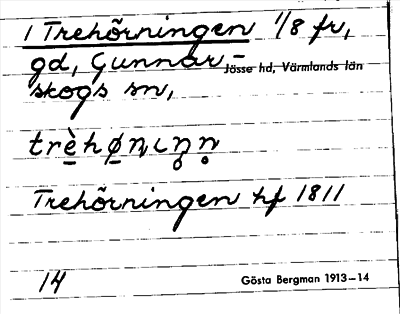 1 Trehörningen 1/8 fr,
gd, Gunnar-
skogs sn, Jösse hd, Värmlands län
trèhøn̥ın̥n̥
Trehörningen hf 1811
14 Gösta Bergman 1913–14